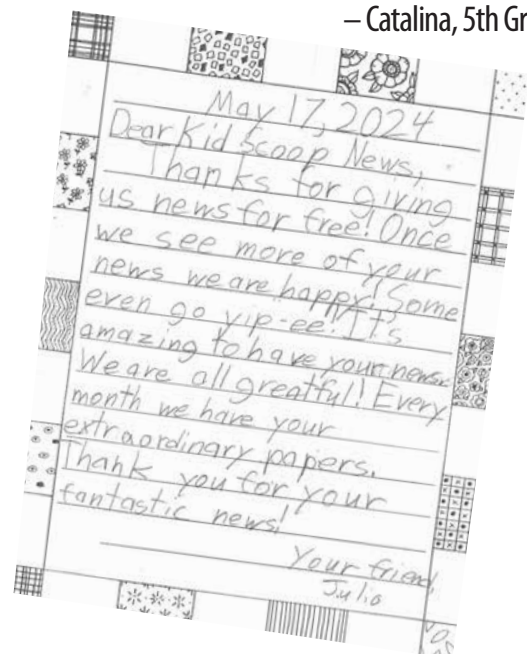 – Catalina, 5th Gr
May 17, 2024
Dear Kid Scoop News,
Thanks for giving
us news for free! Once
we see more of your
news we are happy! Some
even go yip-ee! It's
amazing to have your news.
We are all greatful! Every
month we have your
extraordinary papers.
Thank you for your
fantastic news!
Your friend,
Julio